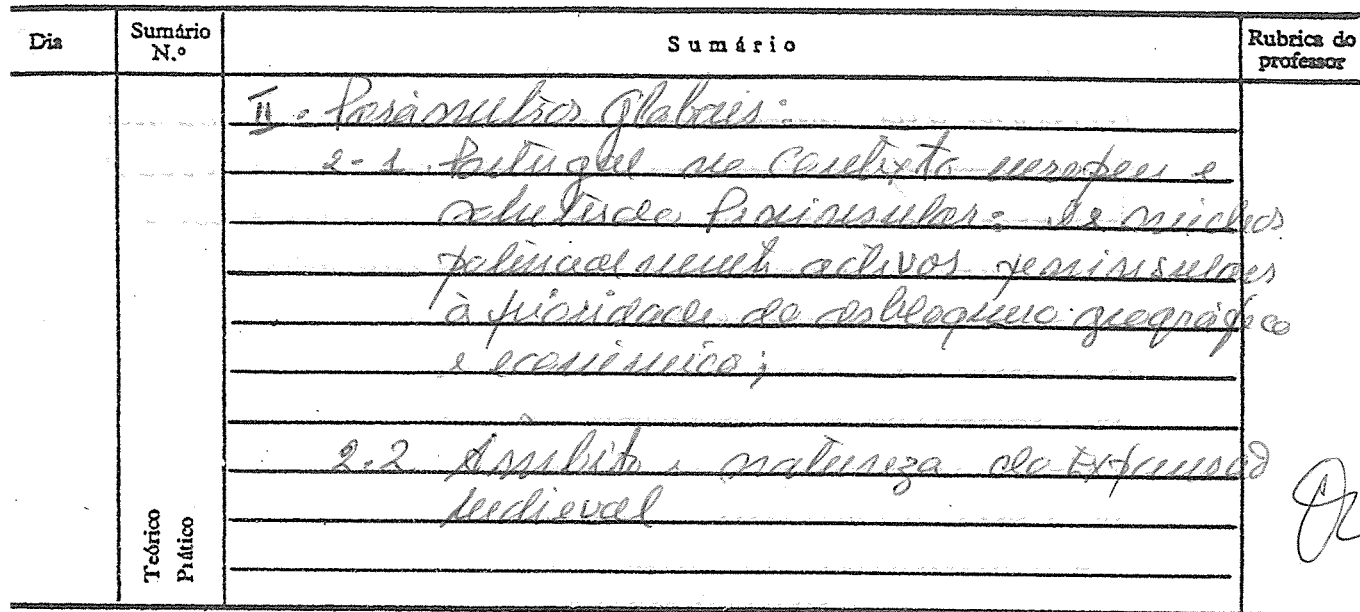 Dia
Sumário N.º
Sumário
Rubrica do professor
II - Parâmetros Globais:
2-1. Portugal no Contexto europeu e
Peninsular: núcleos
politicamente activos peninsulares
à prioridade do desbloqueio geográfico
e económico;
2.2 Âmbito e natureza da Expansão
Medieval
Teórico
Prático